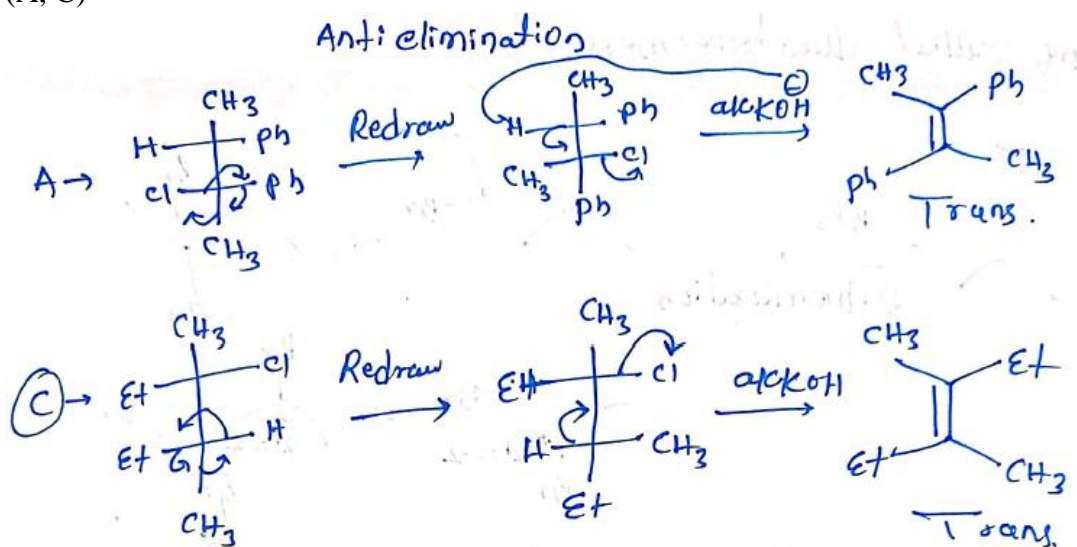 (A, C)
Anti elimination
A → CH3 H Ph Cl Ph CH3 Redraw CH3 H Ph CH3 Cl Ph ⊖ alKKOH CH3 Ph Ph CH3
Trans.
C → CH3 Et Cl Et H CH3 Redraw CH3 Et Cl H CH3 Et alKKOH CH3 Et Et CH3
Trans.